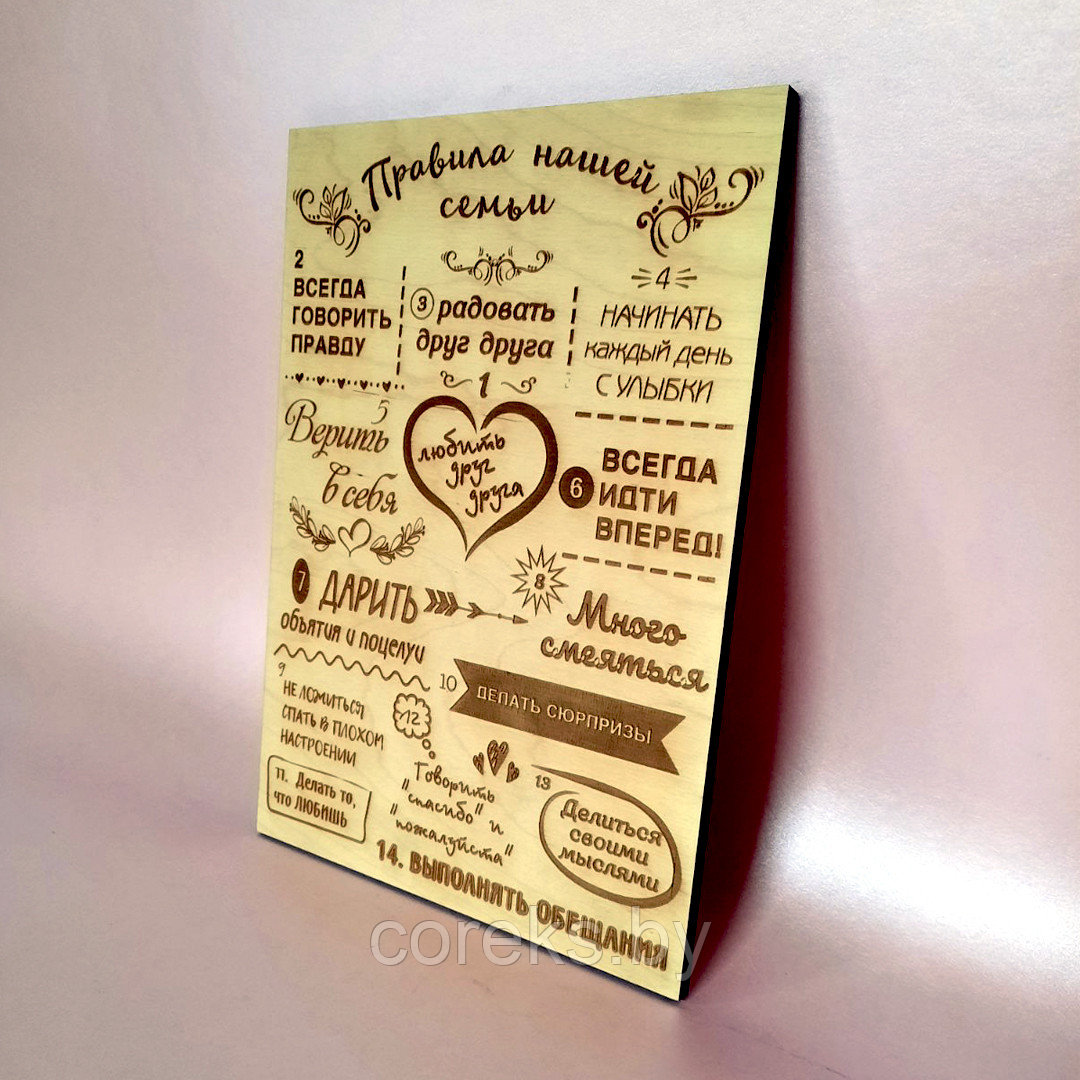 Правила нашей
семьи
2
ВСЕГДА
ГОВОРИТЬ
ПРАВДУ
3 радовать
друг друга
4
НАЧИНАТЬ
каждый день
С УЛЫБКИ
1
любить
друг
друга
5
Верить
в себя
6 ВСЕГДА
ИДТИ
ВПЕРЕД!
7 ДАРИТЬ
объятия и поцелуи
8
Много
смеяться
9
НЕ ЛОЖИТЬСЯ
СПАТЬ В ПЛОХОМ
НАСТРОЕНИИ
10 ДЕЛАТЬ СЮРПРИЗЫ
11. Делать то,
что ЛЮБИШЬ
12
Говорить
"спасибо" и
"пожалуйста"
13
Делиться
своими
мыслями
14. ВЫПОЛНЯТЬ ОБЕЩАНИЯ
coreks.by